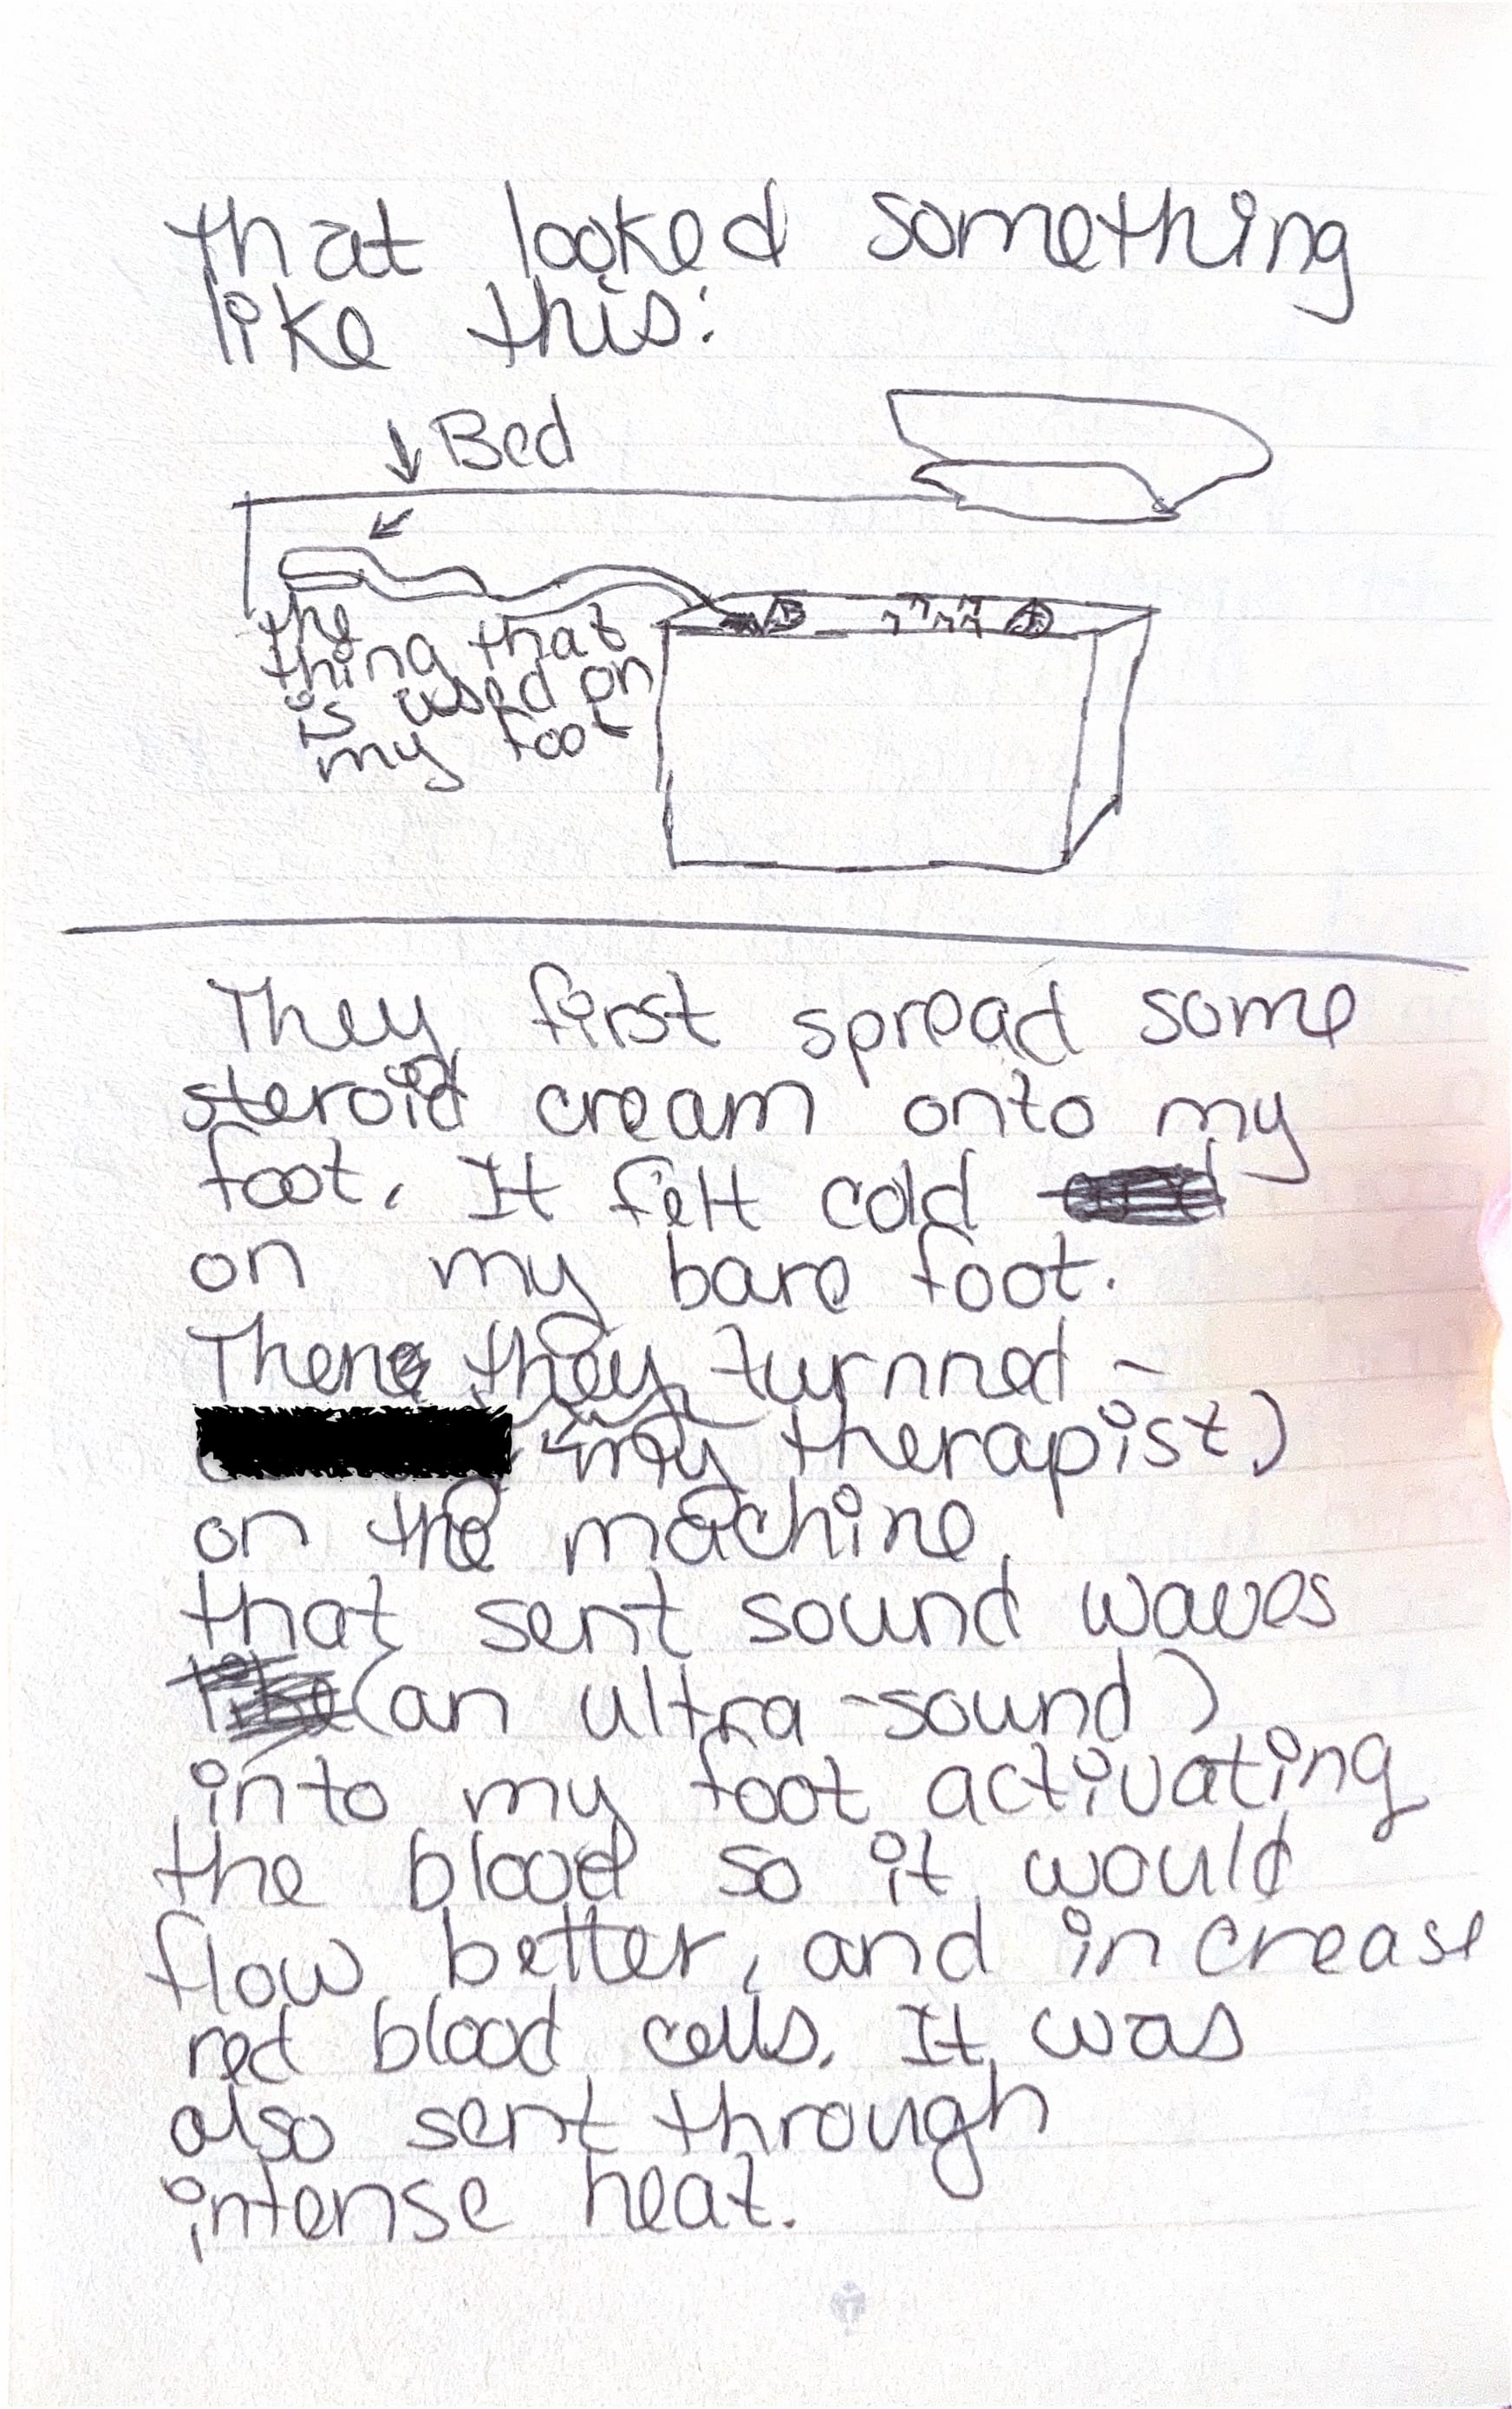 that looked something
like this:
Bed
the
thing that
is used on
my foot
They first spread some
steroid cream onto my
foot. It felt cold
on my bare foot.
Then they turnned -
my therapist)
on the machine,
that sent sound waves
(an ultra-sound)
into my foot activating
the blood so it would
flow better, and increase
red blood cells. It was
also sent through
intense heat.